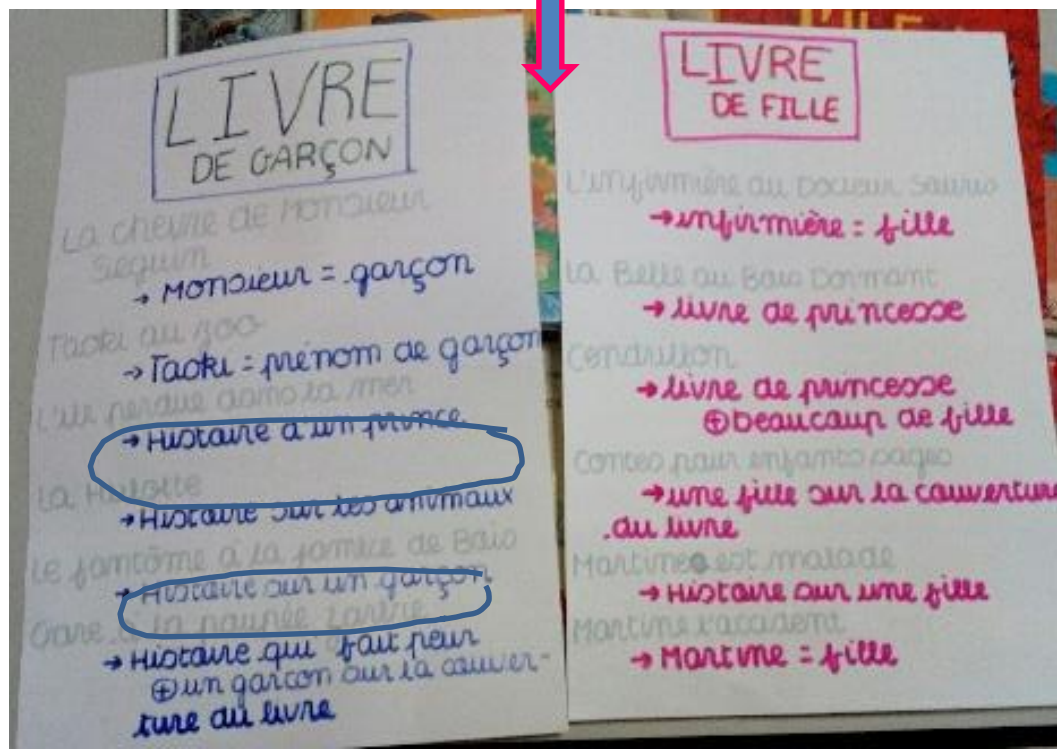 L'ILE
LIVRE
DE GARÇON
La chèvre de Monsieur
Seguin
→ Monsieur = garçon
Taoki au zoo
→ Taoki = prénom de garçon
L'île perdue dans la mer
→ Histoire d'un prince
La Hulotte
→ Histoire sur les animaux
Le fantôme à la jambe de Bois
→ Histoire sur un garçon
Gare à la poupée zarbie
→ Histoire qui fait peur
⊕ un garçon sur la couver-
ture du livre
LIVRE
DE FILLE
L'infirmière du Docteur Sauris
→ infirmière = fille
La Belle au Bois Dormant
→ livre de princesse
Cendrillon
→ livre de princesse
⊕ beaucoup de fille
Contes pour enfants sages
→ une fille sur la couverture
du livre
Martine est malade
→ Histoire sur une fille
Martine l'accident
→ Martine = fille